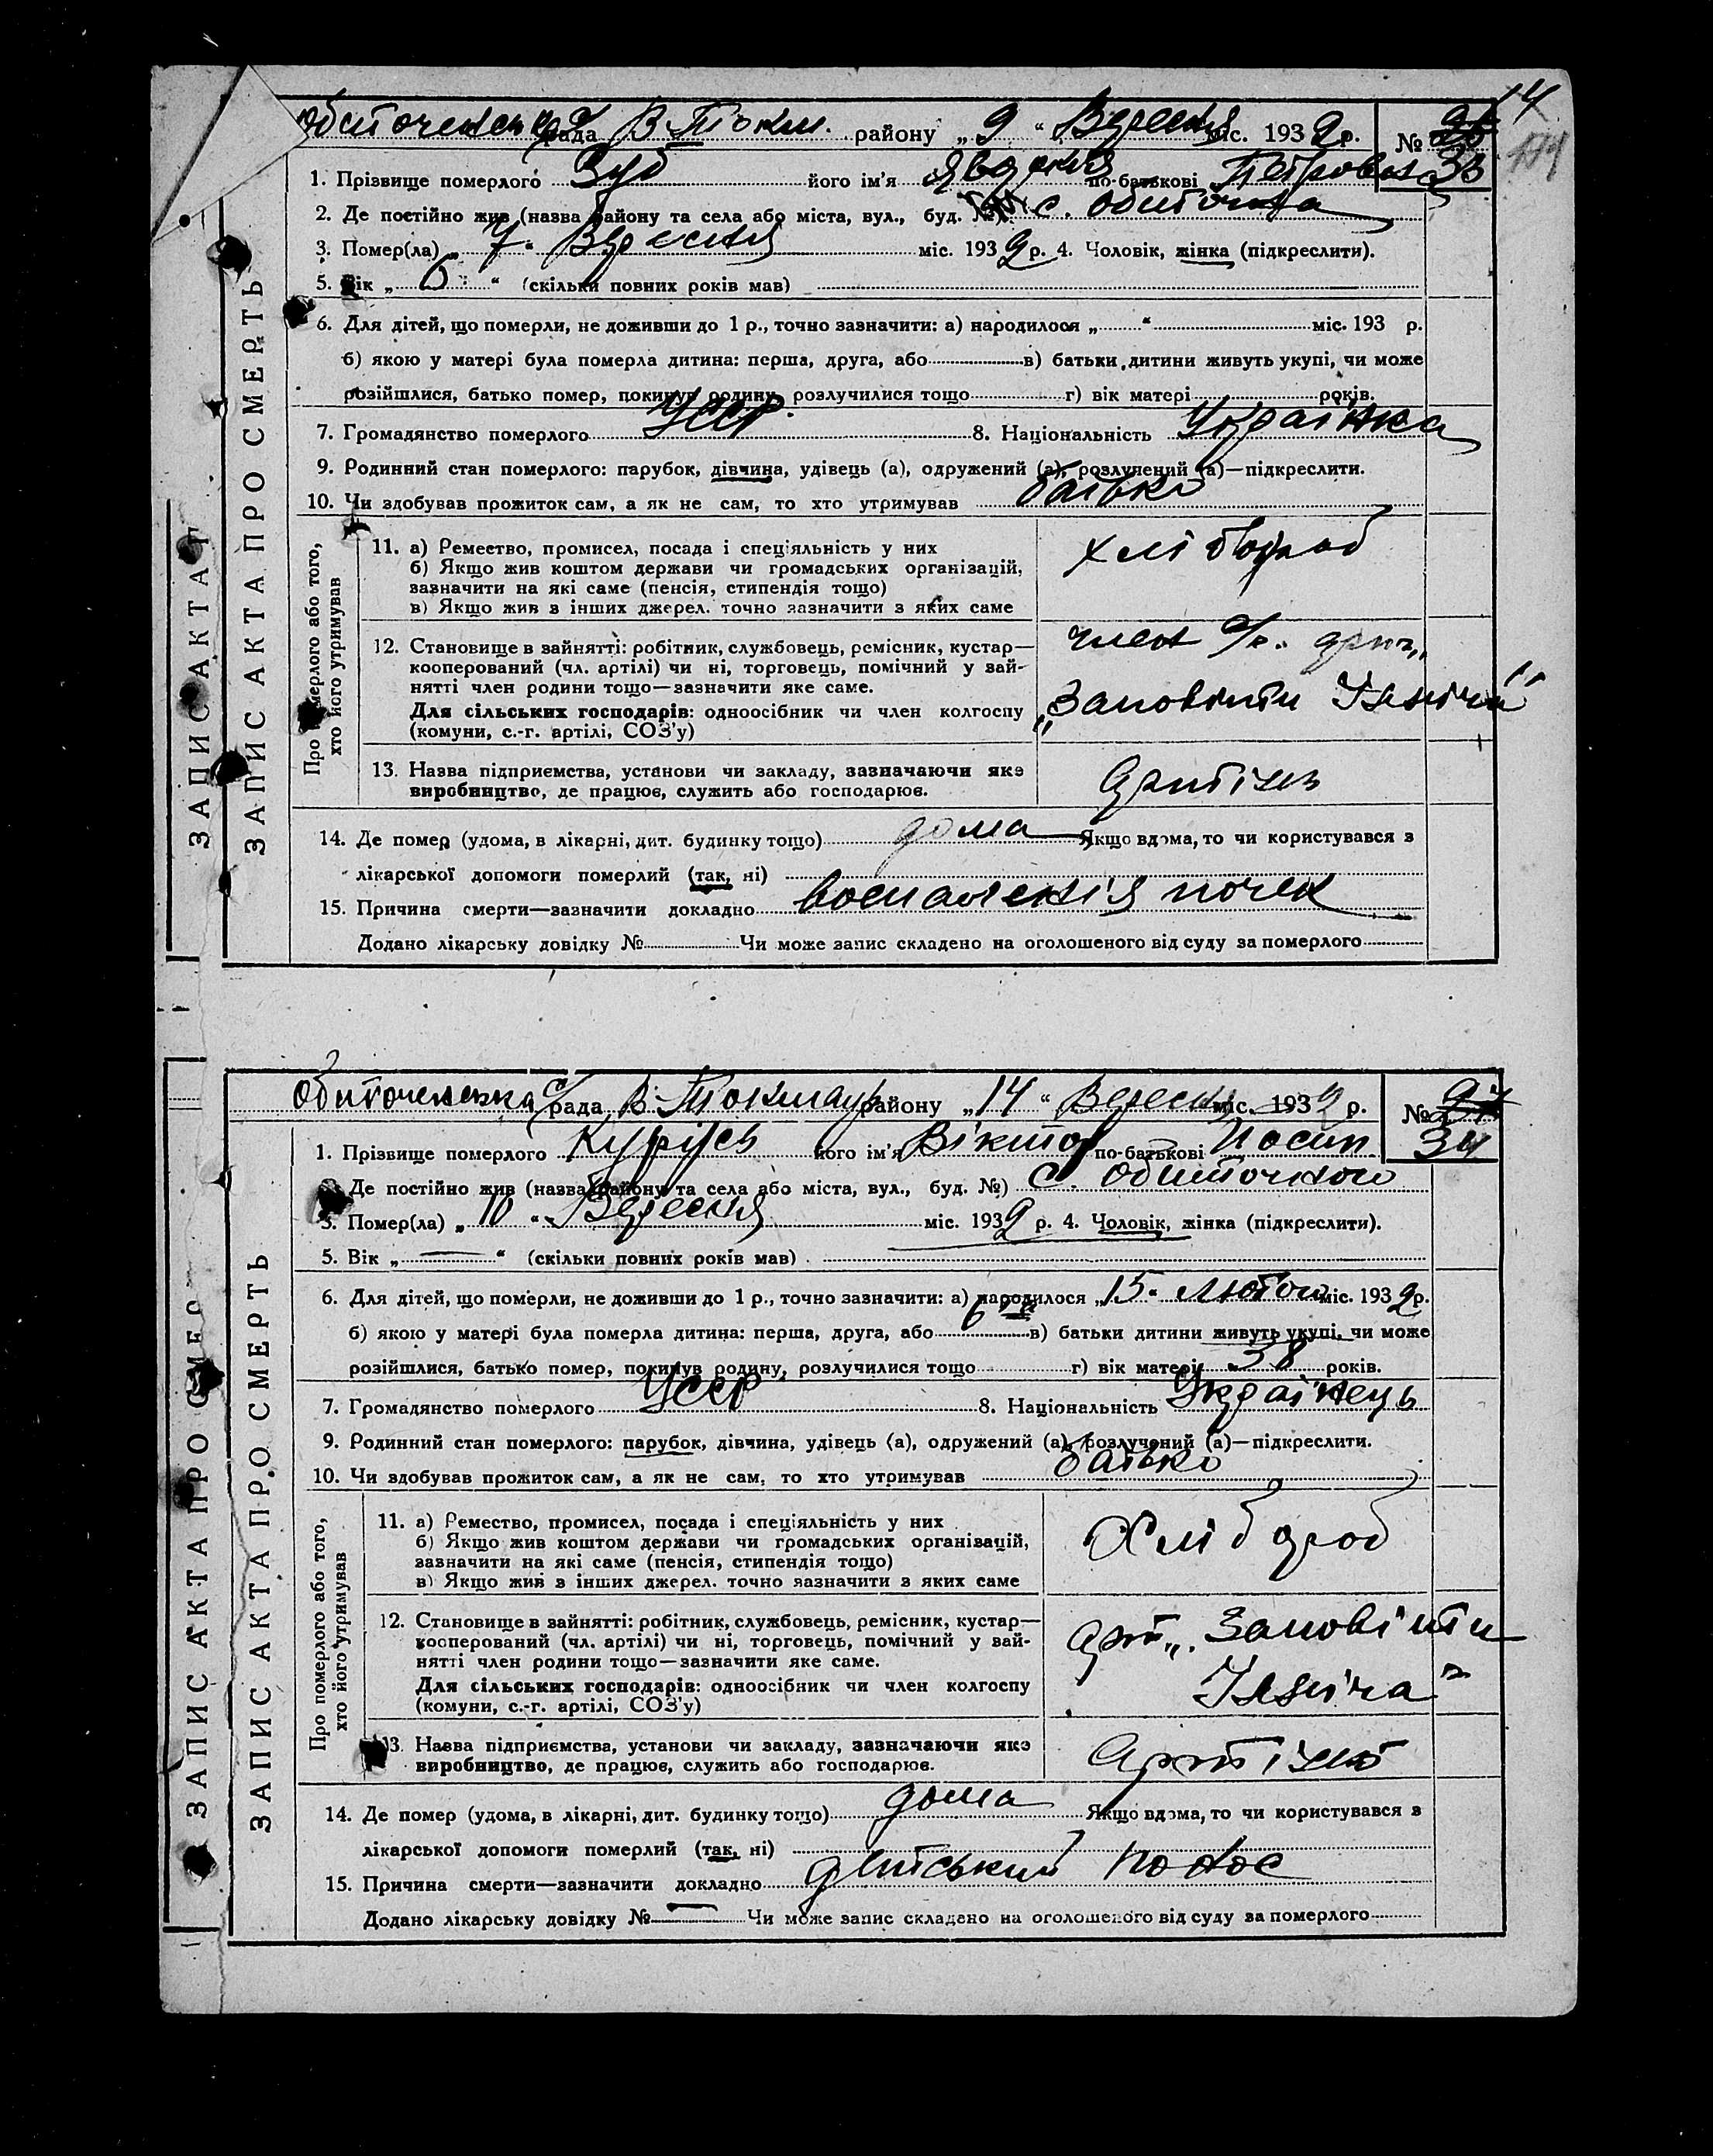 14
Обиточенська с/рада В-Токм. району „9“ Вересня міс. 1932 р. №
33
1. Прізвище померлого Зуб його ім'я Явдокія по-батькові Петровна
2. Де постійно жив (назва району та села або міста, вул., буд. №) с. Обиточна
3. Помер(ла) „7“ Вересня міс. 1932 р. 4. Чоловік, жінка (підкреслити).
5. Вік „6“ (скільки повних років мав)
6. Для дітей, що померли, не доживши до 1 р., точно зазначити: а) народилося „ “ міс. 193 р.
б) якою у матері була померла дитина: перша, друга, або в) батьки дитини живуть укупі, чи може
розійшлися, батько помер, покинув родину, розлучилися тощо г) вік матері років.
7. Громадянство померлого УССР. 8. Національність Українка
9. Родинний стан померлого: парубок, дівчина, удівець (а), одружений (а), розлучений (а)—підкреслити.
10. Чи здобував прожиток сам, а як не сам, то хто утримував батько
ЗАПИС АКТА П
ЗАПИС АКТА ПРО СМЕРТЬ
Про померлого або того,
хто його утримував
11. а) Ремество, промисел, посада і спеціяльність у них
б) Якщо жив коштом держави чи громадських організацій,
зазначити на які саме (пенсія, стипендія тощо)
в) Якщо жив з інших джерел. точно зазначити з яких саме
хлібороб
12. Становище в зайнятті: робітник, службовець, ремісник, кустар—
кооперований (чл. артілі) чи ні, торговець, помічний у зай-
нятті член родини тощо—зазначити яке саме.
Для сільських господарів: одноосібник чи член колгоспу
(комуни, с.-г. артілі, СОЗ'у)
член с/г. арт.
„Заповіти Ілліча“
13. Назва підприємства, установи чи закладу, зазначаючи яке
виробництво, де працює, служить або господарює.
Артіль
14. Де помер (удома, в лікарні, дит. будинку тощо) дома Якщо вдома, то чи користувався з
лікарської допомоги померлий (так, ні)
15. Причина смерти—зазначити докладно воспаленія почек
Додано лікарську довідку № Чи може запис складено на оголошеного від суду за померлого
Обиточенська с/рада В-Токмацьк району „14“ Вересня міс. 1932 р. №
34
1. Прізвище померлого Курусь його ім'я Віктор по-батькові Йосип
2. Де постійно жив (назва району та села або міста, вул., буд. №) с. Обиточного
3. Помер(ла) „10“ Вересня міс. 1932 р. 4. Чоловік, жінка (підкреслити).
5. Вік „—“ (скільки повних років мав)
6. Для дітей, що померли, не доживши до 1 р., точно зазначити: а) народилося „15“ Лютого міс. 1932 р.
б) якою у матері була померла дитина: перша, друга, або 6 в) батьки дитини живуть укупі, чи може
розійшлися, батько помер, покинув родину, розлучилися тощо г) вік матері 38 років.
7. Громадянство померлого УССР 8. Національність Українець
9. Родинний стан померлого: парубок, дівчина, удівець (а), одружений (а), розлучений (а)—підкреслити.
10. Чи здобував прожиток сам, а як не сам, то хто утримував батько
ЗАПИС АКТА ПРО СМЕР
ЗАПИС АКТА ПРО СМЕРТЬ
Про померлого або того,
хто його утримував
11. а) Ремество, промисел, посада і спеціяльність у них
б) Якщо жив коштом держави чи громадських організацій,
зазначити на які саме (пенсія, стипендія тощо)
в) Якщо жив з інших джерел. точно зазначити з яких саме
Хлібороб
12. Становище в зайнятті: робітник, службовець, ремісник, кустар—
кооперований (чл. артілі) чи ні, торговець, помічний у зай-
нятті член родини тощо—зазначити яке саме.
Для сільських господарів: одноосібник чи член колгоспу
(комуни, с.-г. артілі, СОЗ'у)
Арт. „Заповіти
Ілліча“
13. Назва підприємства, установи чи закладу, зазначаючи яке
виробництво, де працює, служить або господарює.
Артіль
14. Де помер (удома, в лікарні, дит. будинку тощо) дома Якщо вдома, то чи користувався з
лікарської допомоги померлий (так, ні)
15. Причина смерти—зазначити докладно дитський понос
Додано лікарську довідку № — Чи може запис складено на оголошеного від суду за померлого